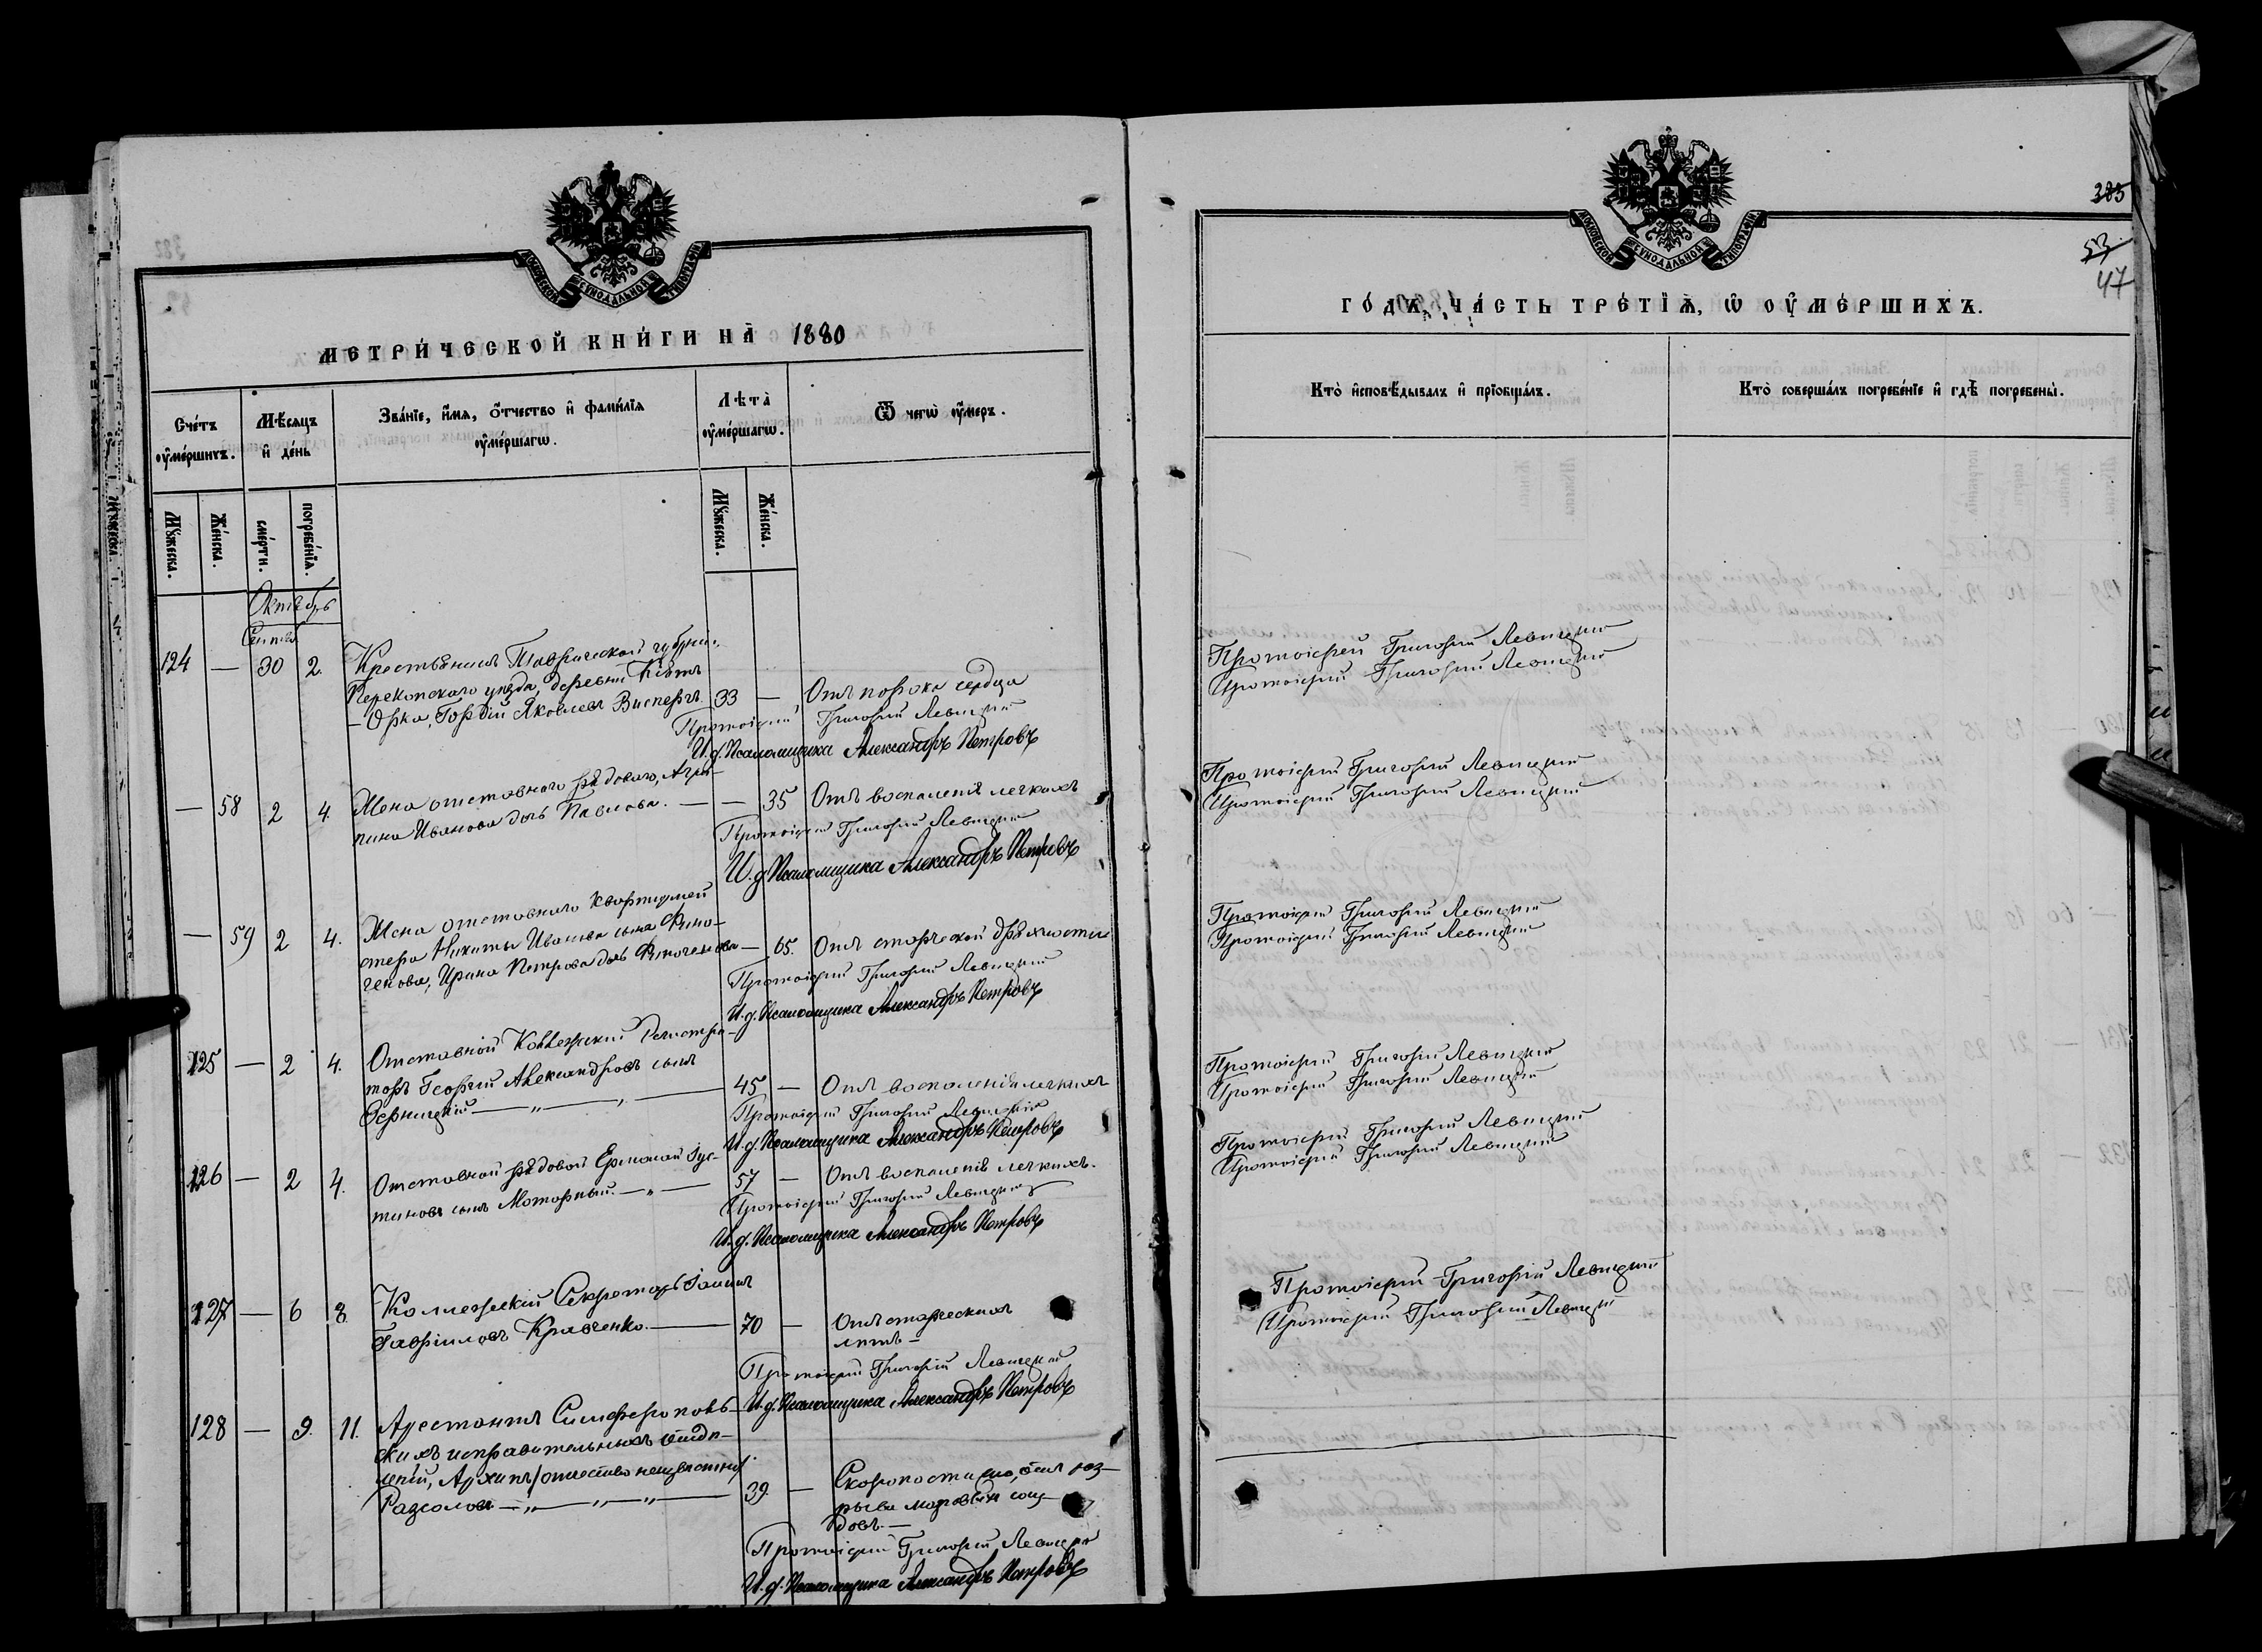 МОСКОВСКОЙ СѴНОДАЛЬНОЙ ТИПОГРАФІИ
МЕТРИ́ЧЕСКОЙ КНИ́ГИ НА̀ 1880
Сче́тъ ᲂу҆ме́ршихъ.
Мѣ́сяцъ и҆ де́нь
Зва́нїе, и҆́мѧ, ѻ҆́тчество и҆ фами́лїѧ ᲂу҆ме́ршагѡ.
Лѣта̀ ᲂу҆ме́ршагѡ.
Ѿ чегѡ̀ ᲂу҆́меръ.
Мꙋ́жеска.
Же́нска.
сме́рти.
погребе́нїѧ.
Мꙋ́жеска.
Же́нска.
Октябрь
Сентяб.
124 — 30 2. Крестьянинъ Таврической губерніи,
Перекопскаго уѣзда, деревни
Орка, Гордій Яковлевъ 33 — Отъ порока сердца
Протоіерей Григорій Левицкій
И.д. Псаломщика Александръ Петровъ
— 58 2 4. Жена отставного рядового, Агри-
пина Иванова дочь Павлова. — — 35 Отъ воспаленія легкихъ
Протоіерей Григорій Левицкій
И.д. Псаломщика Александръ Петровъ
— 59 2 4. Жена отставнаго квартирмей
стера Никиты Иванова сына Фино-
генова, Ирина Петрова дочь Финогенова — 65. Отъ старческой дряхлости
Протоіерей Григорій Левицкій
И.д. Псаломщика Александръ Петровъ
125 — 2 4. Отставной Коллежскій Регистра-
торъ Георгій Александровъ сынъ
45 — Отъ воспаленія легкихъ
Протоіерей Григорій Левицкій
И.д. Псаломщика Александръ Петровъ
126 — 2 4. Отставной рядовой Ермолай Іус-
тиновъ сынъ Моторный. — „ — 57 — Отъ воспаленія легкихъ.
Протоіерей Григорій Левицкій
И.д. Псаломщика Александръ Петровъ
127 — 6 8. Коллежскій Секретарь Іоаннъ
Гавріиловъ Кравченко. — 70 — Отъ старческихъ
лѣтъ —
Протоіерей Григорій Левицкій
И.д. Псаломщика Александръ Петровъ
128 — 9. 11. Арестантъ Симферополь-
скихъ исправительныхъ отдѣ-
леній, Архипъ /отчество неизвѣстно/
— „ — „ — „ — 39. — Скоропостижно, отъ раз-
рыва мозговыхъ сосу-
довъ. —
Протоіерей Григорій Левицкій
И.д. Псаломщика Александръ Петровъ
383
53
47
МОСКОВСКОЙ СѴНОДАЛЬНОЙ ТИПОГРАФІИ
ГО́ДЪ, ЧА́СТЬ ТРЕ́ТЇѦ, Ѡ҆ ОУ҆МЕ́РШИХЪ.
Кто̀ и҆сповѣ́дывалъ и҆ прїобща́лъ.
Кто̀ соверша́лъ погребе́нїе и҆ гдѣ̀ погребены̀.
Протоіерей Григорій Левицкій
Протоіерей Григорій Левицкій
Протоіерей Григорій Левицкій
Протоіерей Григорій Левицкій
Протоіерей Григорій Левицкій
Протоіерей Григорій Левицкій
Протоіерей Григорій Левицкій
Протоіерей Григорій Левицкій
Протоіерей Григорій Левицкій
Протоіерей Григорій Левицкій
Протоіерей Григорій Левицкій
Протоіерей Григорій Левицкій